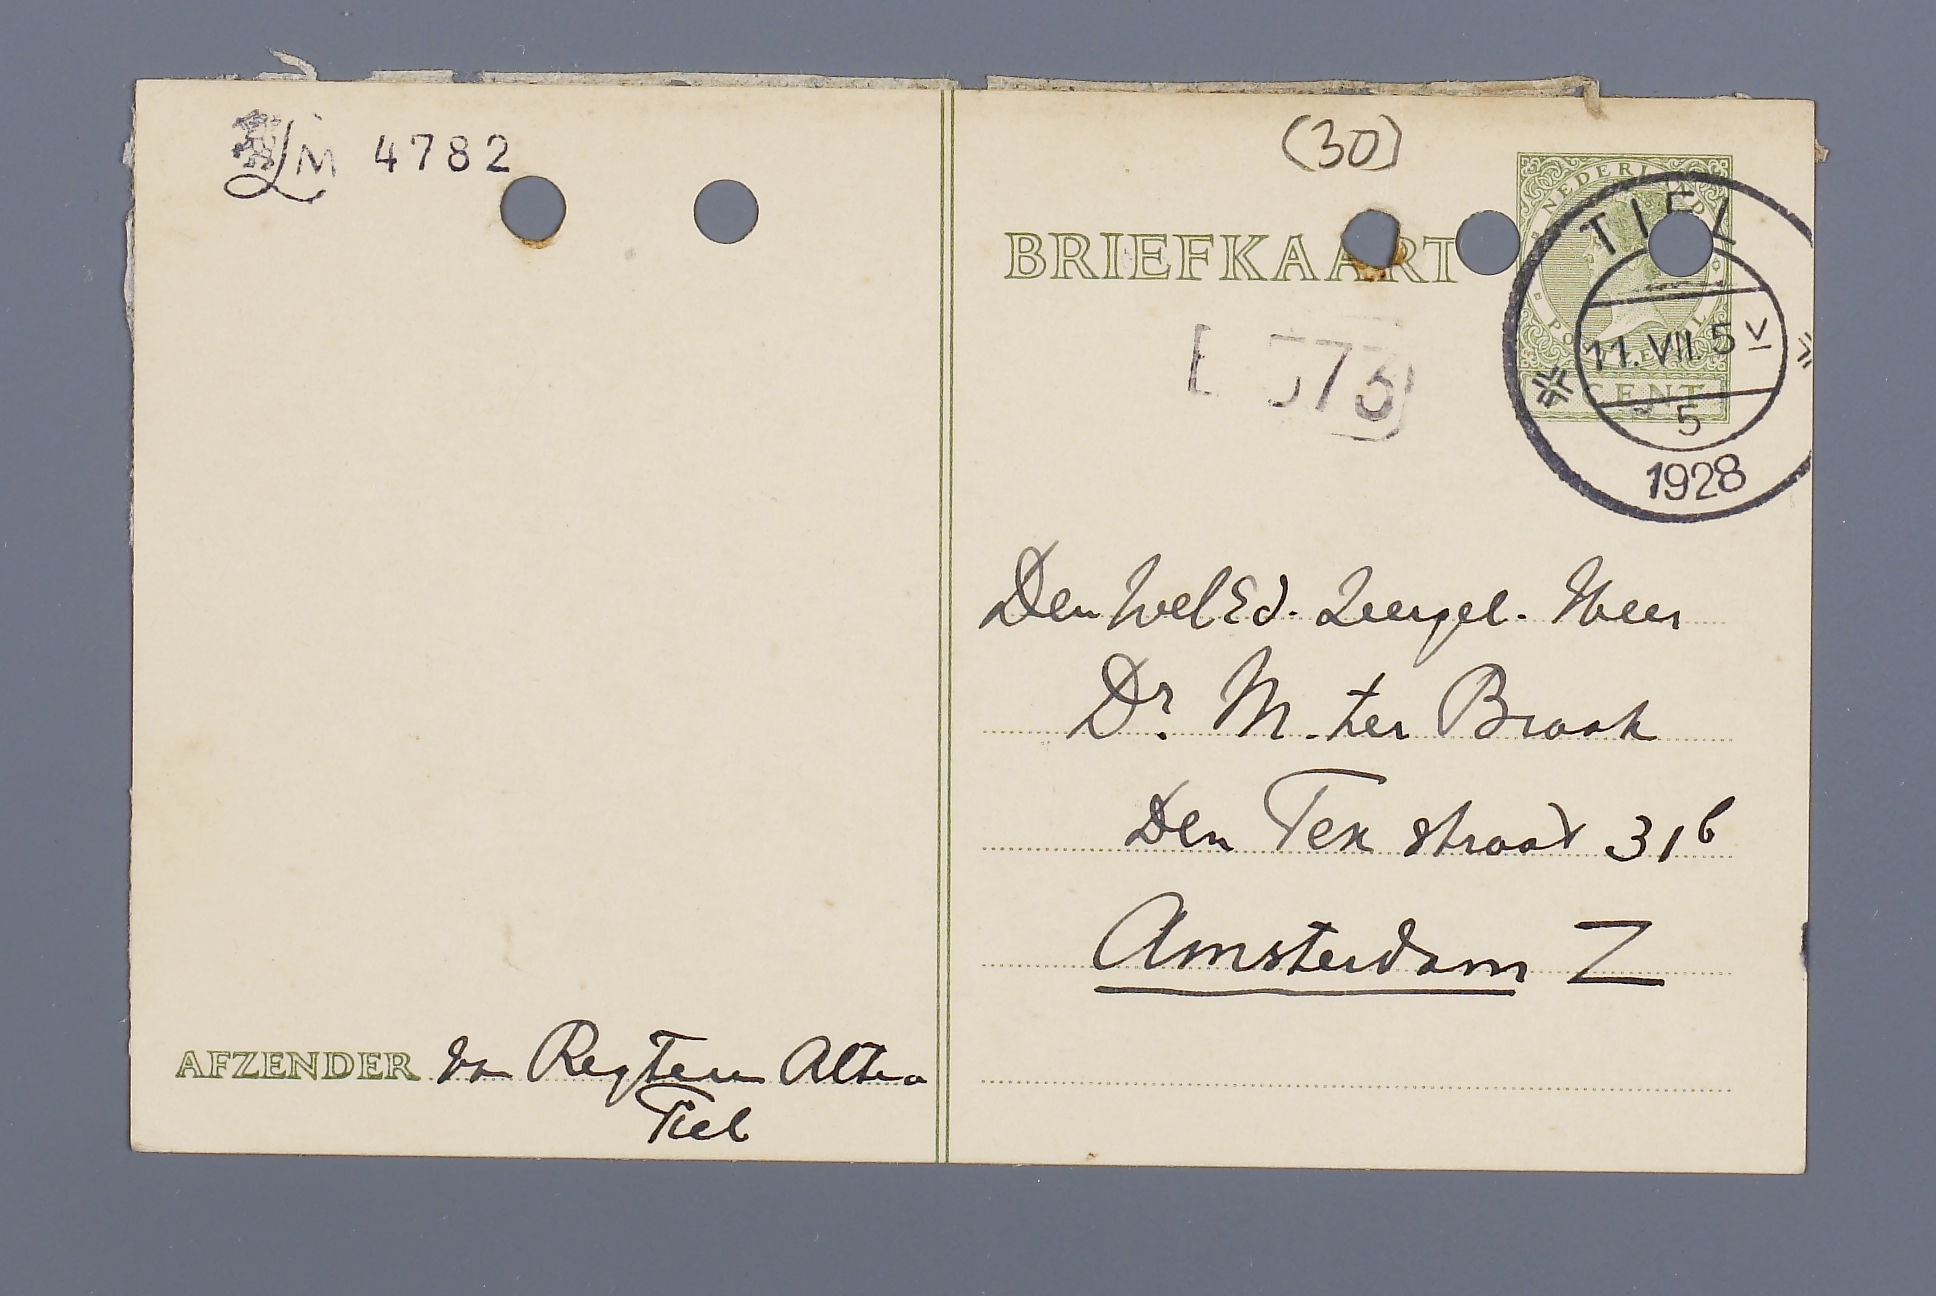 LM 4782
(30)
BRIEFKAART
NEDERLAND
TIEL
11. VII. 5
CENT
5
1928
373
Den WelEd. Zeergel. Heer
Dr. M. ter Braak
Den Tex straat 31b
Amsterdam Z
AFZENDER van Regteren Altena
Tiel